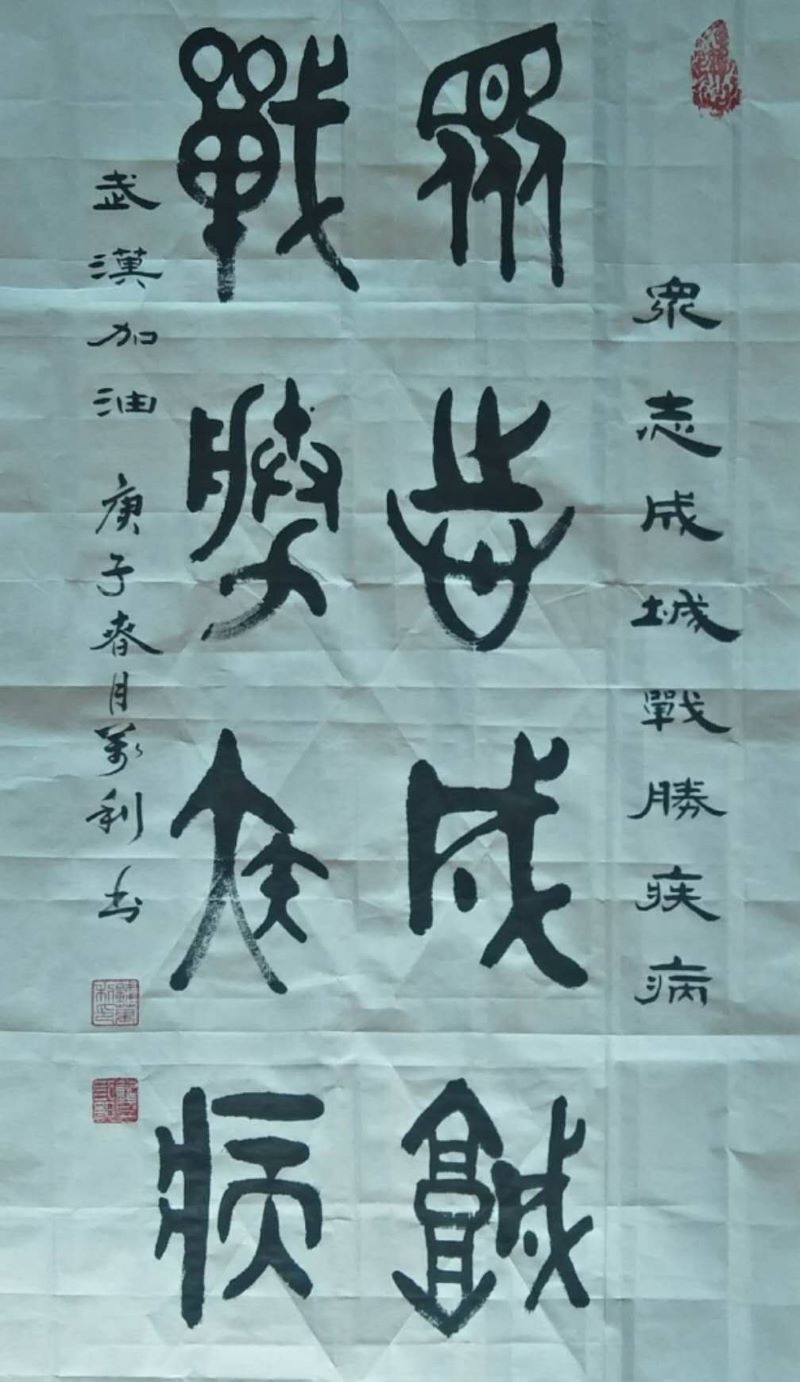 眾志成城戰勝疾病
眾志成城
戰勝疾病
武漢加油 庚子春月萬利书